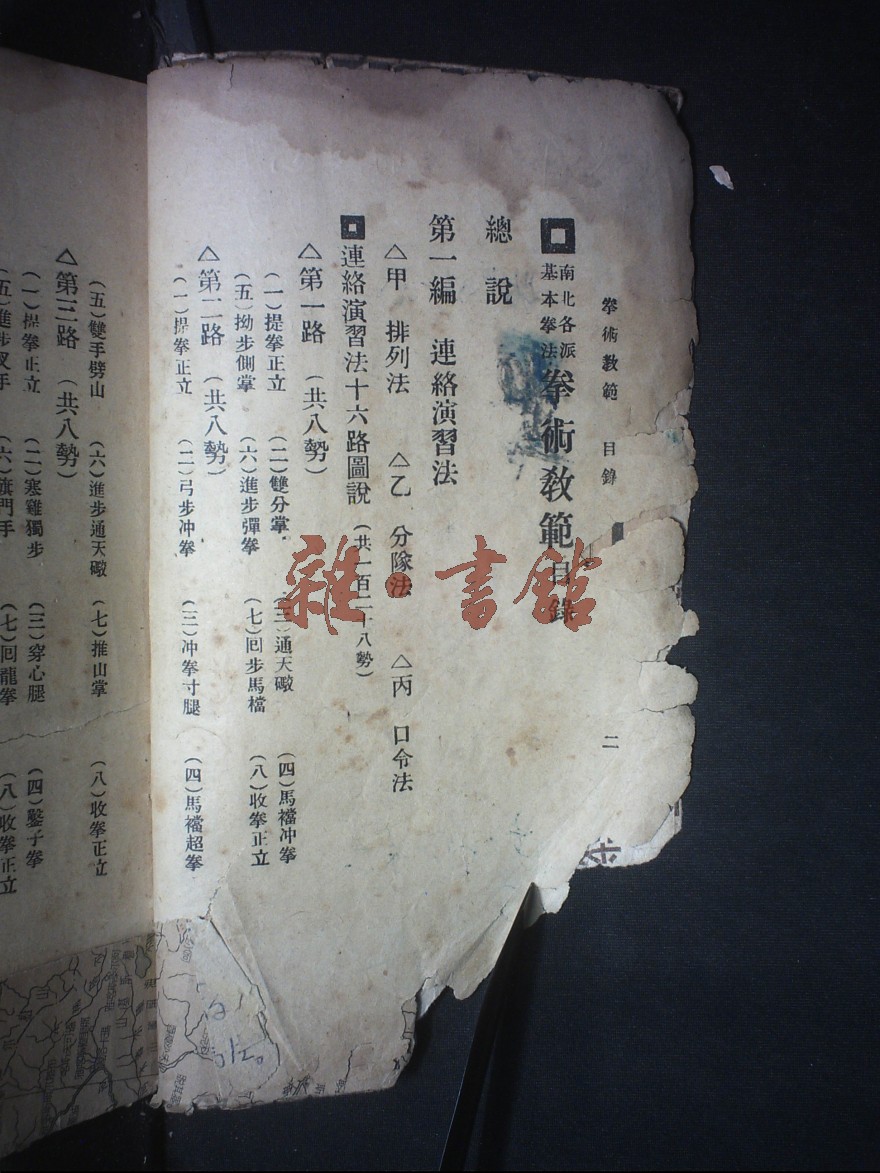 拳術教範 目錄 二
南北各派
基本拳法
拳術教範目錄
總說
第一編 連絡演習法
△甲 排列法 △乙 分隊法 △丙 口令法
連絡演習法十六路圖說（共一百二十八勢）
△第一路（共八勢）
（一）提拳正立 （二）雙分掌 （三）通天礮 （四）馬襠冲拳
（五）拗步側掌 （六）進步彈拳 （七）回步馬檔 （八）收拳正立
△第二路（共八勢）
（一）提拳正立 （二）弓步冲拳 （三）冲拳寸腿 （四）馬襠超拳
（五）雙手劈山 （六）進步通天礮 （七）推山掌 （八）收拳正立
△第三路（共八勢）
（一）提拳正立 （二）寒雞獨步 （三）穿心腿 （四）鑿子拳
（五）進步双手 （六）旗門手 （七）回龍拳 （八）收拳正立
雜·書館